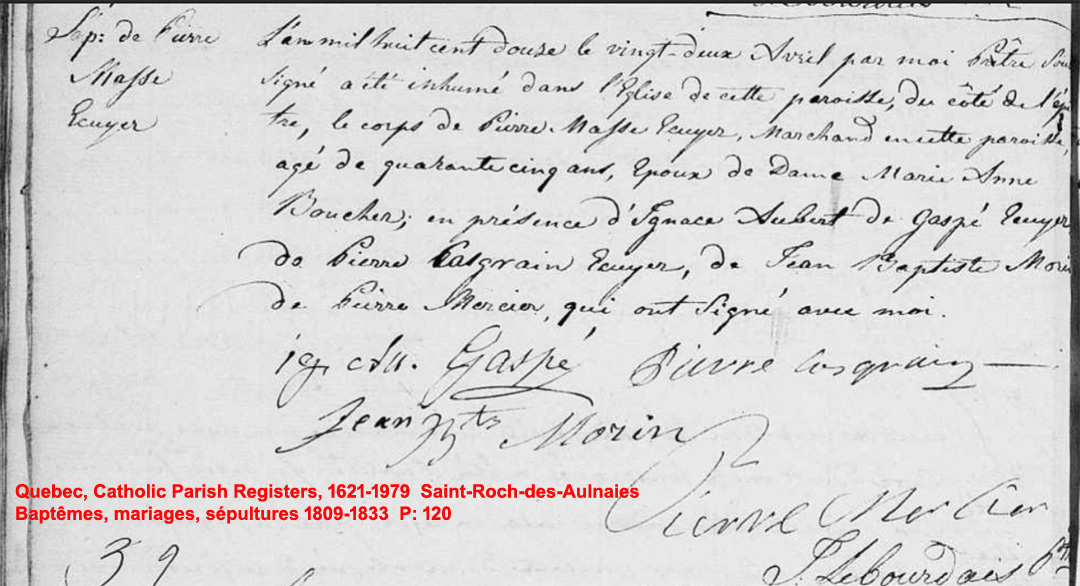 Sép: de Pierre
Masse
Ecuyer
L'an mil huit cent douze le vingt-deux Avril par moi Prêtre Sous
signé a été inhumé dans l'Eglise de cette paroisse, du côté de l'épi
tre, le corps de Pierre Masse Ecuyer, Marchand en cette paroisse,
agé de quarante cinq ans, Epoux de Dame Marie Anne
Boucher; en présence d'Ignace Aubert de Gaspé Ecuyer
de Pierre Casgrain Ecuyer, de Jean Baptiste Morin
de Pierre Mercier, qui ont signé avec moi.
Gaspé Pierre Casgrain
Jean Bte. Morin
Quebec, Catholic Parish Registers, 1621-1979 Saint-Roch-des-Aulnaies
Baptêmes, mariages, sépultures 1809-1833 P: 120
Pierre Mercier
Lebourdais ptre
39